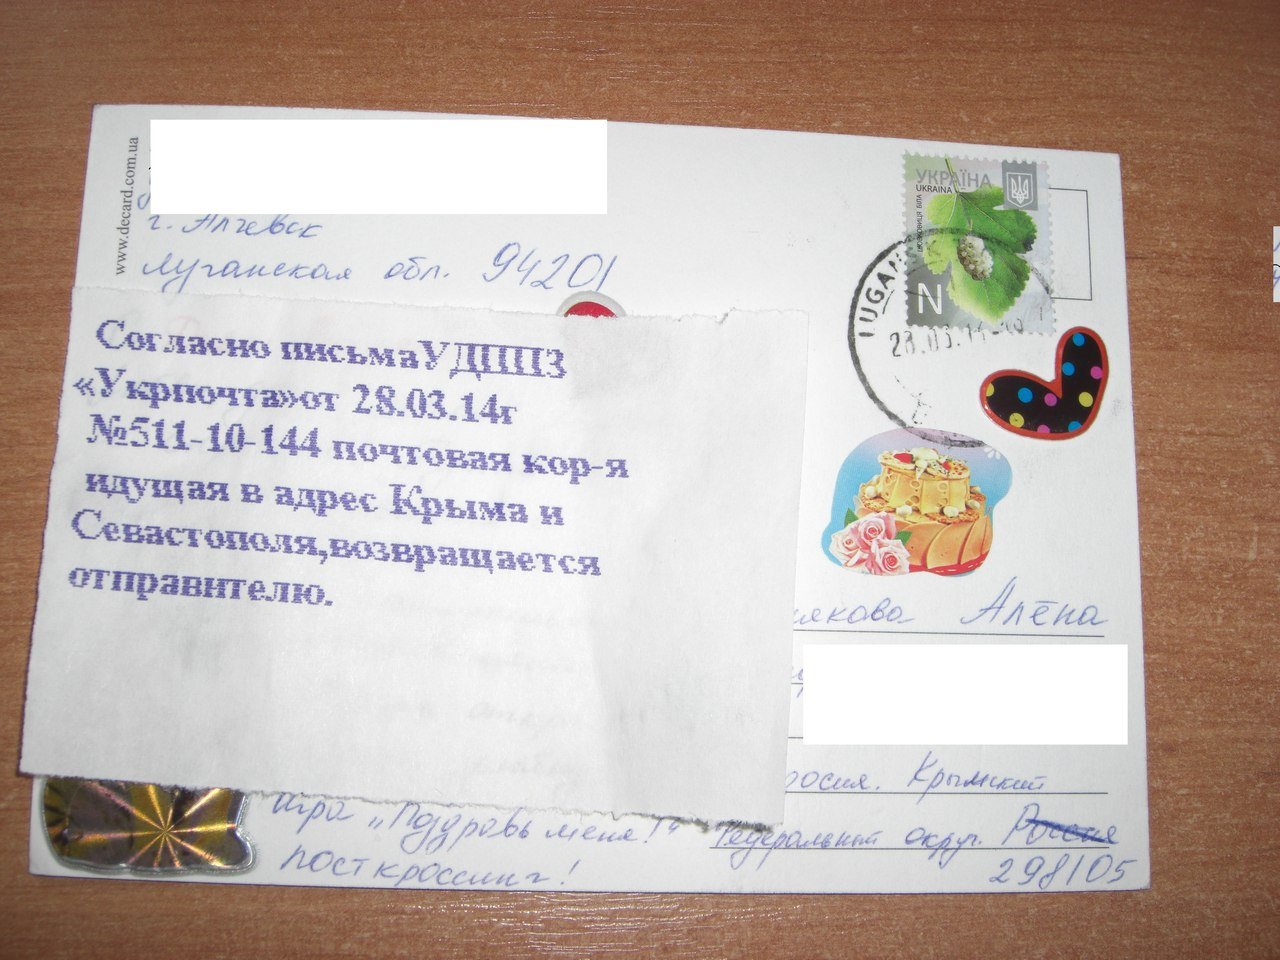 www.dccard.com.ua
г. Алчевск
Луганская обл. 94201
УКРАЇНА
UKRAINA
ШОВКОВИЦЯ БІЛА
N
LUGAN
28.03.14
Согласно письмаУДППЗ
«Укрпочта»от 28.03.14г
№511-10-144 почтовая кор-я
идущая в адрес Крыма и
Севастополя,возвращается
отправителю.
Алёна
Крымский
Федеральный округ. Россия
298105
Игра „Поздровь меня!"
посткроссинг!